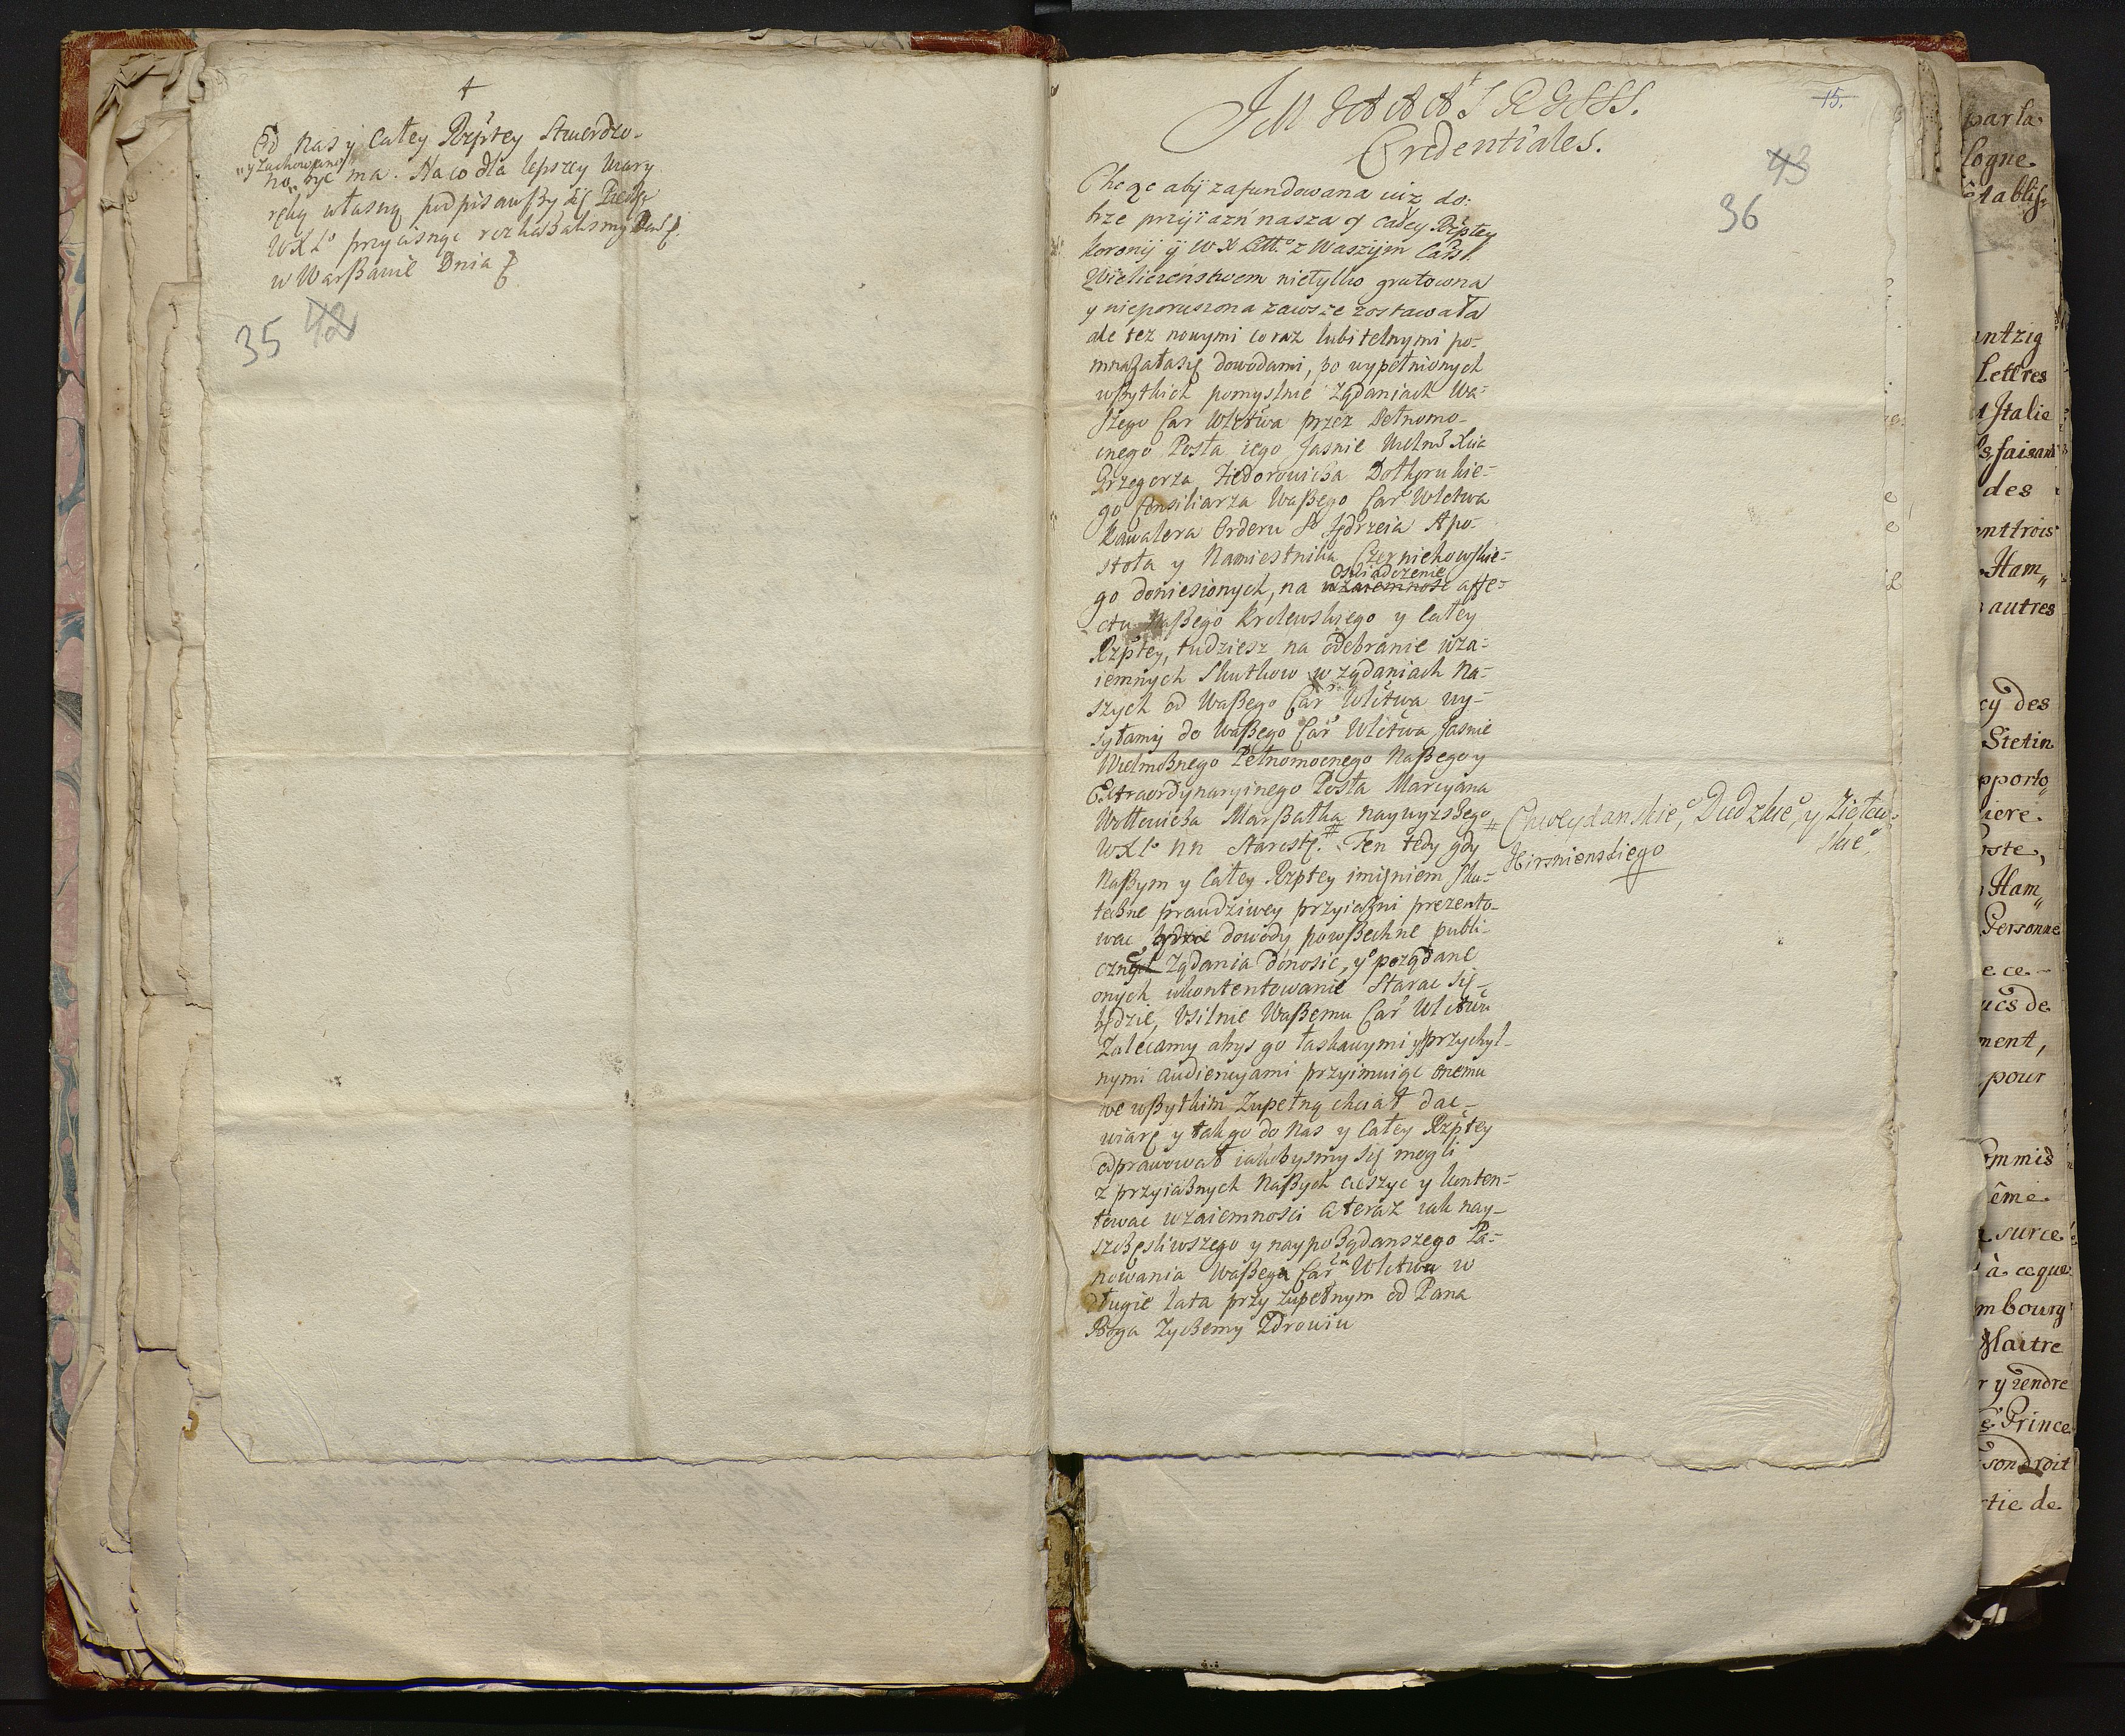 Od Nas y Całey Rzptey Stwerdzo-
"y Zachowano"
no, byc ma. Na co dla lepszey wiary
ręką własną podpisawszy się Pieczęć
WXLo przycisnąc rozkazalismy Dan
w Warßawie Dnia
35 42
15.
Credentiales.
43
36
Chcąc aby zafundowana iuż do:
brze przyiazń nasza y całey Rzptey
Korony y WX Litto z Waszym Carsk.
Wieliczenstwem nietylko gruntowna
y nieporuszona zawsze zostawała
ale tez nowymi coraz lubitelnymi po-
mnażała się dowodami, po wypełnionych
wßytkich pomyslnie Żądaniach Wa-
szego Car Wlctwa przez Pełnomo-
cnego Posła iego Jasnie Wielmo Xcia
Grzegorza Fiedorowicza Dołhoruckie-
go Consiliarza Waßego Car Wlctwa
Kawalera Orderu So Jędrzeia Apo-
stoła y Namiestnika Czerniehowskie-
Oswiadczenie
go doniesionych, na wzaiemnosc affe-
ctu Naßego Krolewskiego y całey
Rzptey, tudziesz na odebranie wza-
iemnych Skutkow w żądaniach Na-
szych od Waßego Car Wlctwa wy-
syłamy do Waßego Car Wlctwa Jasnie
Wielmożnego Pełnomocnego Naßego y
Extraordynaryinego Posła Marcyana
Wołłowicza Marßałka naywyzszego
WXLo NN Starostę. # Ten tedy gdy
# Chweydanskieo, Dudzkieo, y Zielew-
skieo
Naßym y Całey Rzptey imieniem sku-
teczne prawdziwey przyiazni prezento-
wac będzie dowody, powßechne publi-
czne Żądania donosic, y pożądane
onych ukontentowanie Starac się
będzie, Usilnie Waßemu Car Wlctwu
Zalecamy abys go łaskawymi y przychyl-
nymi audiencyami przyimuiąc onemu
we wßytkim Zupełną chciał dac
wiarę y tak go do Nas y Całey Rzptey
odprawował iakobysmy się mogli
z przyiaznych Naßych cieszyc y konten-
towac wzaiemnosci a teraz iak nay-
szczęsliwszego y naypożądanszego Pa-
nowania Waßego Car Wlctwu w
długie lata przy zupełnym od Pana
Boga Życzemy Zdrowiu
parla
logne
établis-
antzig
Lettres
Italie
s, faisant
des
enttrois
Ham„
autres
cy des
Stetin
pporto„
iere
oste,
Ham„
Personne
e ce
ués de
ment,
pour
ommis
ême
surce
à ceque
mbourg
Maitre
r y rendre
Prince
son droit
rtie de